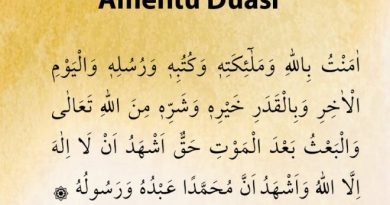 Amentü Duası
اٰمَنْتُ بِاللهِ وَمَلٰٓئِكَتِه۪ وَكُتُبِه۪ وَرُسُلِه۪ وَالْيَوْمِ
الْاٰخِرِ وَبِالْقَدَرِ خَيْرِه۪ وَشَرِّه۪ مِنَ اللهِ تَعَالٰى
وَالْبَعْثُ بَعْدَ الْمَوْتِ حَقٌّ اَشْهَدُ اَنْ لَا اِلٰهَ
اِلَّا اللهُ وَاَشْهَدُ اَنَّ مُحَمَّدًا عَبْدُهُ وَرَسُولُهُ ۞